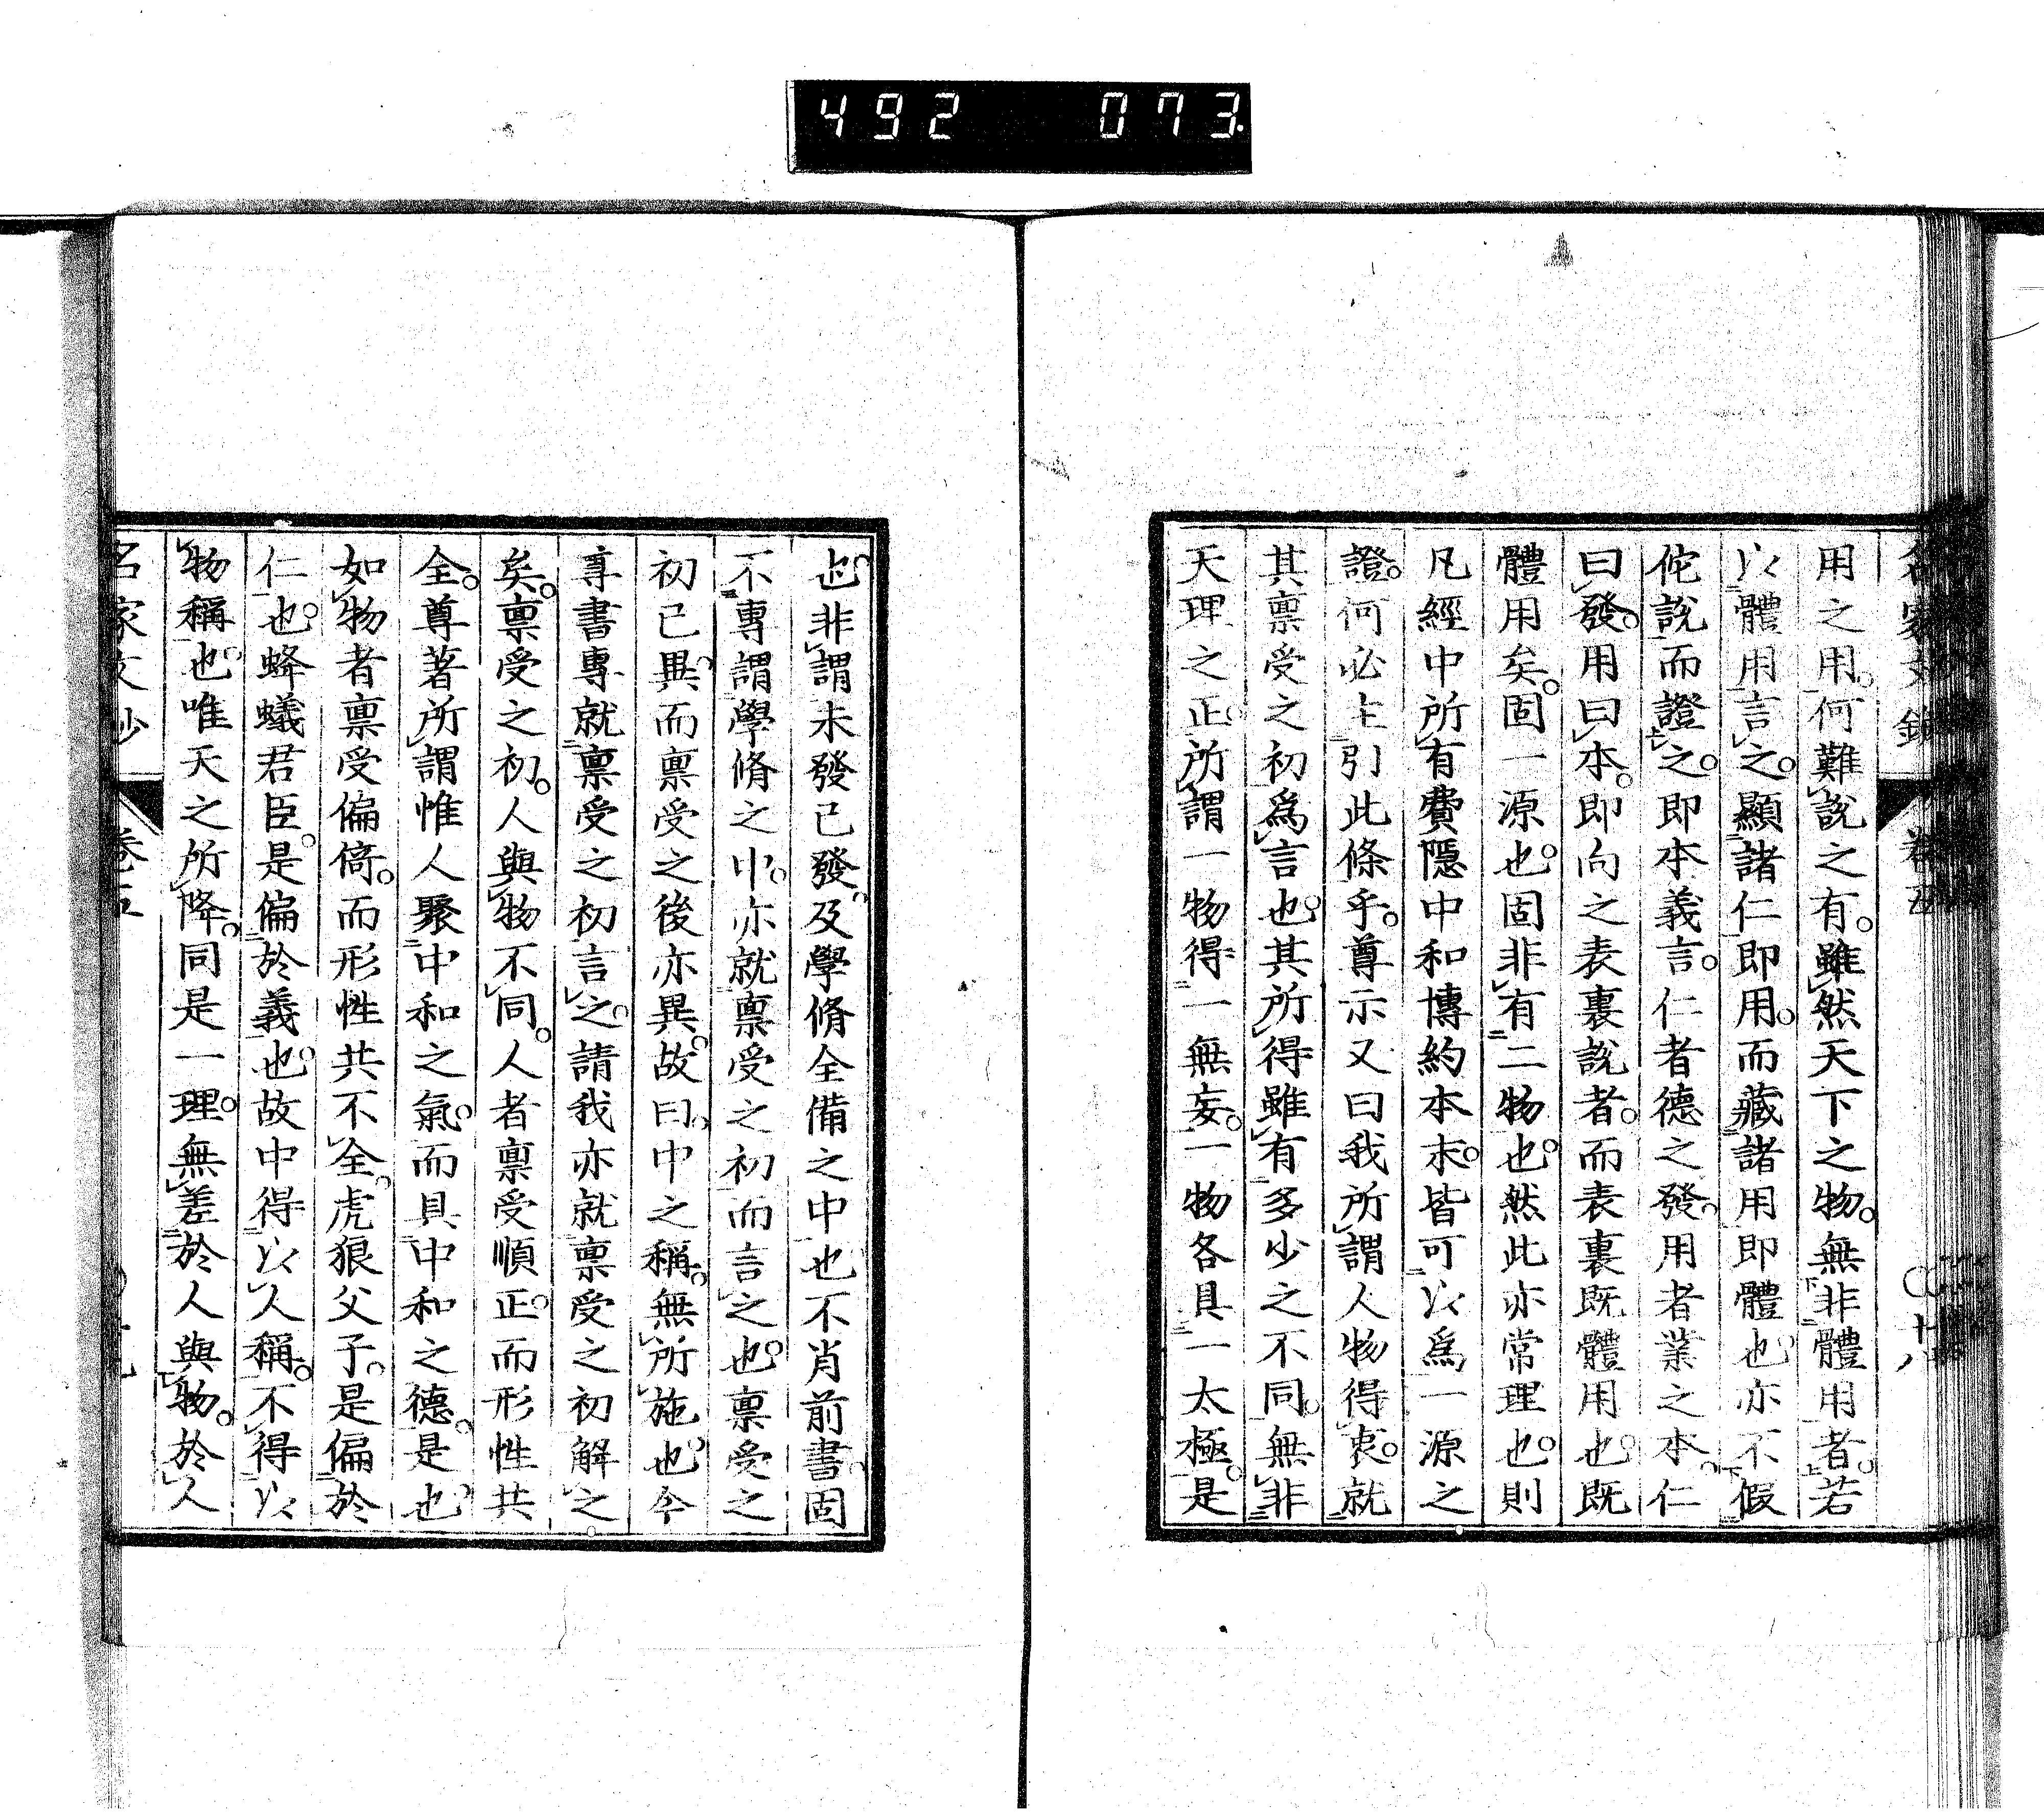 492 073
用之用。何難説之有。雖然天下之物。無非體用者。若
以體用言之。顯諸仁即用。而藏諸用即體也。亦不假
佗説而證之。即本義言。仁者德之發。用者業之本。仁
曰發。用曰本。即向之表裏説者。而表裏既體用也。既
體用矣。固一源也。固非有二物也。然此亦常理也。則
凡經中所有費隱中和博約本末。皆可以爲一源之
證。何必主引此條乎。尊示又曰我所謂人物得衷。就
其禀受之初爲言也。其所得雖有多少之不同。無非
天理之正。所謂一物得一無妄。一物各具一太極。是
也。非謂未發已發。及學脩全備之中也不肖前書。固
不專謂學脩之中。亦就禀受之初而言之也。禀受之
初已異。而禀受之後亦異。故曰。中之稱。無所施也。今
尊書專就禀受之初言之。請我亦就禀受之初解之
矣。禀受之初。人與物不同。人者禀受順正。而形性共
全。尊著所謂惟人聚中和之氣。而具中和之德。是也。
如物者禀受偏倚。而形性共不全。虎狼父子。是偏於
仁也。蜂蟻君臣。是偏於義也。故中得以人稱。不得以
物稱也。唯天之所降。同是一理。無差於人與物。於人
名家文抄 卷五